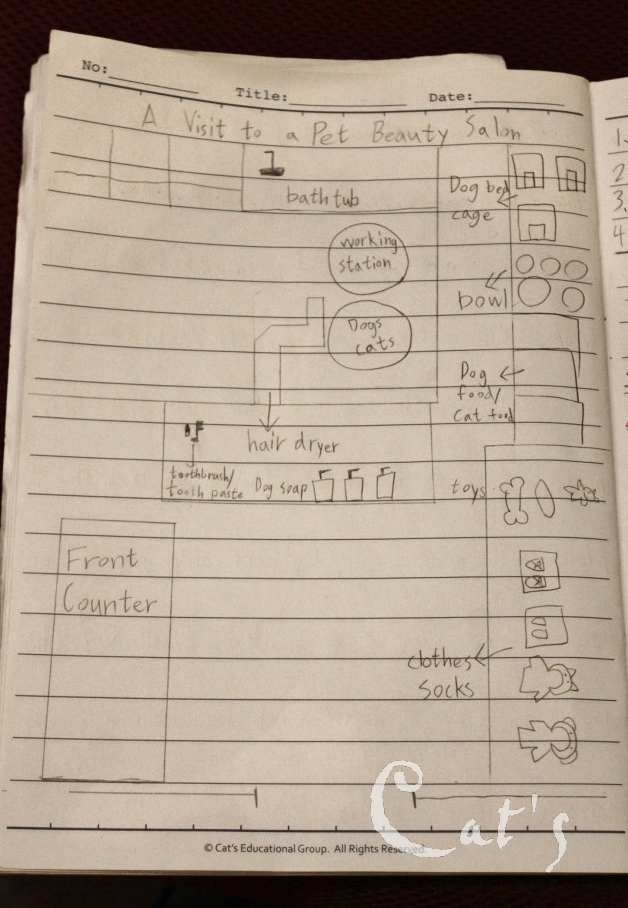 No:
Title:
Date:
A Visit to a Pet Beauty Salon
bath tub
Dog bed
cage
working
station
bowl
Dogs
cats
Dog
food/
Cat food
hair dryer
toothbrush/
tooth paste
Dog soap
toys
Front
Counter
clothes
socks
© Cat's Educational Group. All Rights Reserved.
Cat's
1.
2
3.
4